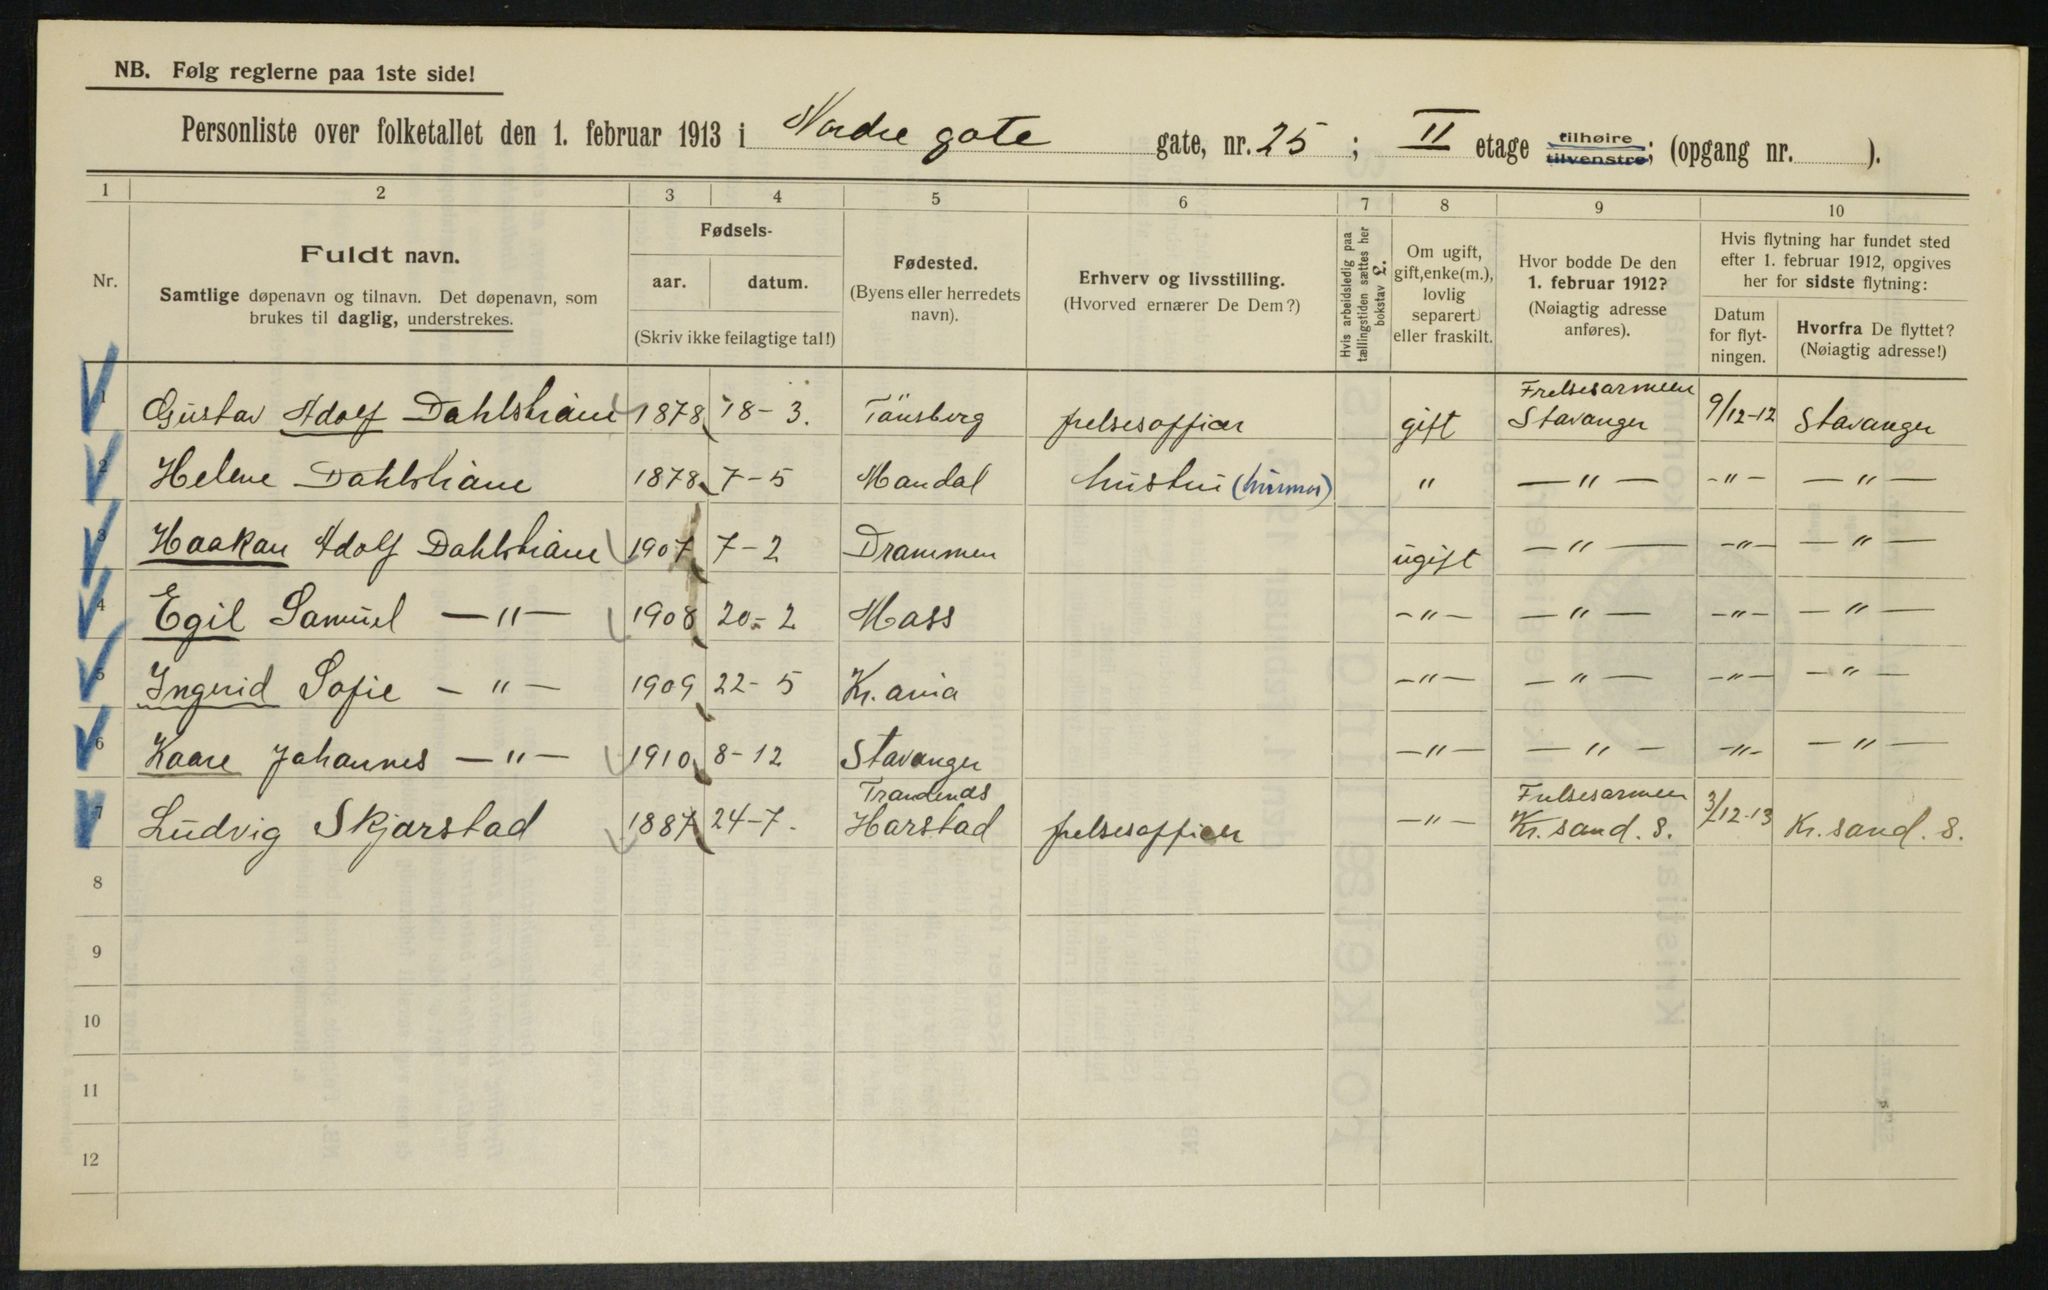 NB. Følg reglerne paa 1ste side!
Personliste over folketallet den 1. februar 1913 i Nordre gate gate, nr. 25 ; II etage tilhøire tilvenstre; (opgang nr. ).
1 2 3 4 5 6 7 8 9 10
Nr.
Fuldt navn.
Samtlige døpenavn og tilnavn. Det døpenavn, som
brukes til daglig, understrekes.
Fødsels-
aar. datum.
(Skriv ikke feilagtige tal!)
Fødested.
(Byens eller herredets
navn).
Erhverv og livsstilling.
(Hvorved ernærer De Dem?)
Hvis arbeidsledig paa
tællingstiden sættes her
bokstav L.
Om ugift,
gift, enke(m.),
lovlig
separert
eller fraskilt.
Hvor bodde De den
1. februar 1912?
(Nøiagtig adresse
anføres).
Hvis flytning har fundet sted
efter 1. februar 1912, opgives
her for sidste flytning:
Datum
for flyt-
ningen.
Hvorfra De flyttet?
(Nøiagtig adresse!)
1 Gustav Adolf Dahlstrøm 1878 18-3. Tönsberg frelsesofficer gift Frelsesarmeen Stavanger 9/12-12 Stavanger
2 Helene Dahlstrøm 1878 7-5 Mandal hustru (husmor) " —"— -"- —"—
3 Haakon Adolf Dahlstrøm 1907 7-2 Drammen ugift —"— -"- —"—
4 Egil Samuel —"— 1908 20-2 Moss -"- —"— -"- —"—
5 Ingrid Sofie —"— 1909 22-5 Kr.ania -"- —"— -"- —"—
6 Kaare Johannes —"— 1910 8-12 Stavanger —"— —"— -"- —"—
7 Ludvig Skjarstad 1887 24-7. Trondenæs Harstad frelsesofficer —"— Frelsesarmeen Kr.sand. S. 3/12-13 Kr.sand. S.
8
9
10
11
12